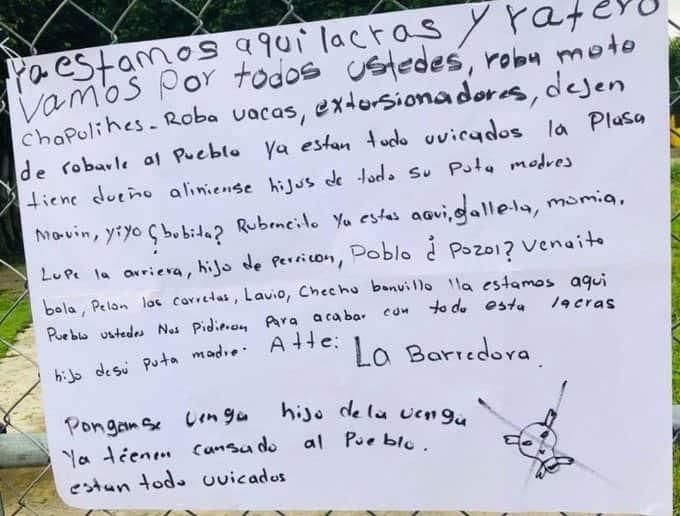 Ya estamos aqui lacras y ratero
Vamos por todos ustedes, roba moto
Chapolines - Roba vacas, extorsionadores, dejen
de robarle al Pueblo Ya estan todo uvicados la Plasa
tiene dueño aliniense hijos de todo su puta madres
Mavin, yiyo ¿bubita? Rubencito Ya estas aqui, galleta, momia,
Lupe la arriera, hijo de Pericon, Poblo ¿ Pozol? Venaito
bola, Pelon las carretas, Lavio, Checho banvillo lla estamos aqui
Pueblo ustedes Nos Pidieron Para acabar con todo esta lacras
hijo desú puta madre. Atte: La Barredora.
Ponganse venga hijo de la venga
Ya tienen cansado al Pueblo.
estan todo uvicados